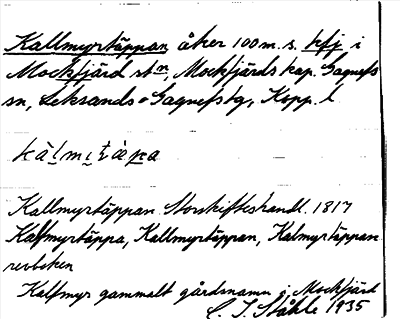 Kallmyrtäppan åker 100 m. s. kfj i
Mockfjärd stn, Mockfjärds kap. Gagnefs
sn, Leksands- o Gagnefs tg, Kopp. l
kàlmi̯tæ̀pa
Kallmyrtäppan Storskifteshandl. 1817
Kallmyrtäppa, Kallmyrtäppan, Kalmyrtäppan
revboken
Kallmyr gammalt gårdsnamn i Mockfjärd
C. I. Ståhle 1935